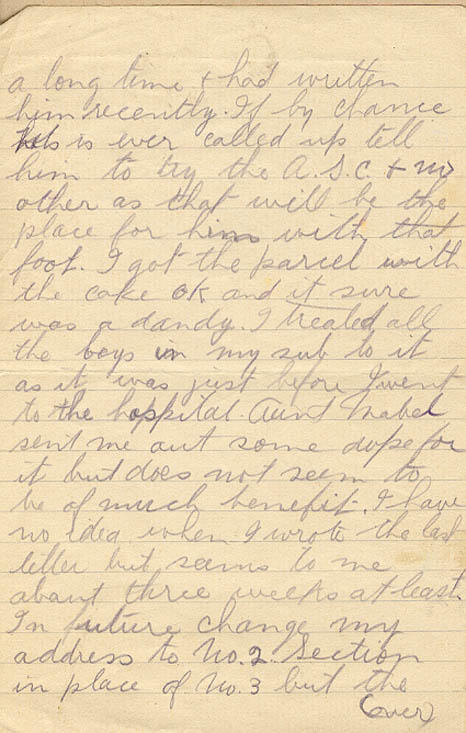 a long time + had written
him recently. If by chance
is ever called up tell
him to try the A.S.C. + no
other as that will be the
place for him with that
foot. I got the parcel with
the cake OK and it sure
was a dandy. I treated all
the boys in my sub to it
as it was just before I went
to the hospital. Aunt Mabel
sent me out some dope for
it but does not seem to
be of much benefit. I have
no idea when I wrote the last
letter but seems to me
about three weeks at least.
In future change my
address to No. 2 Section
in place of No. 3 but the
(over)